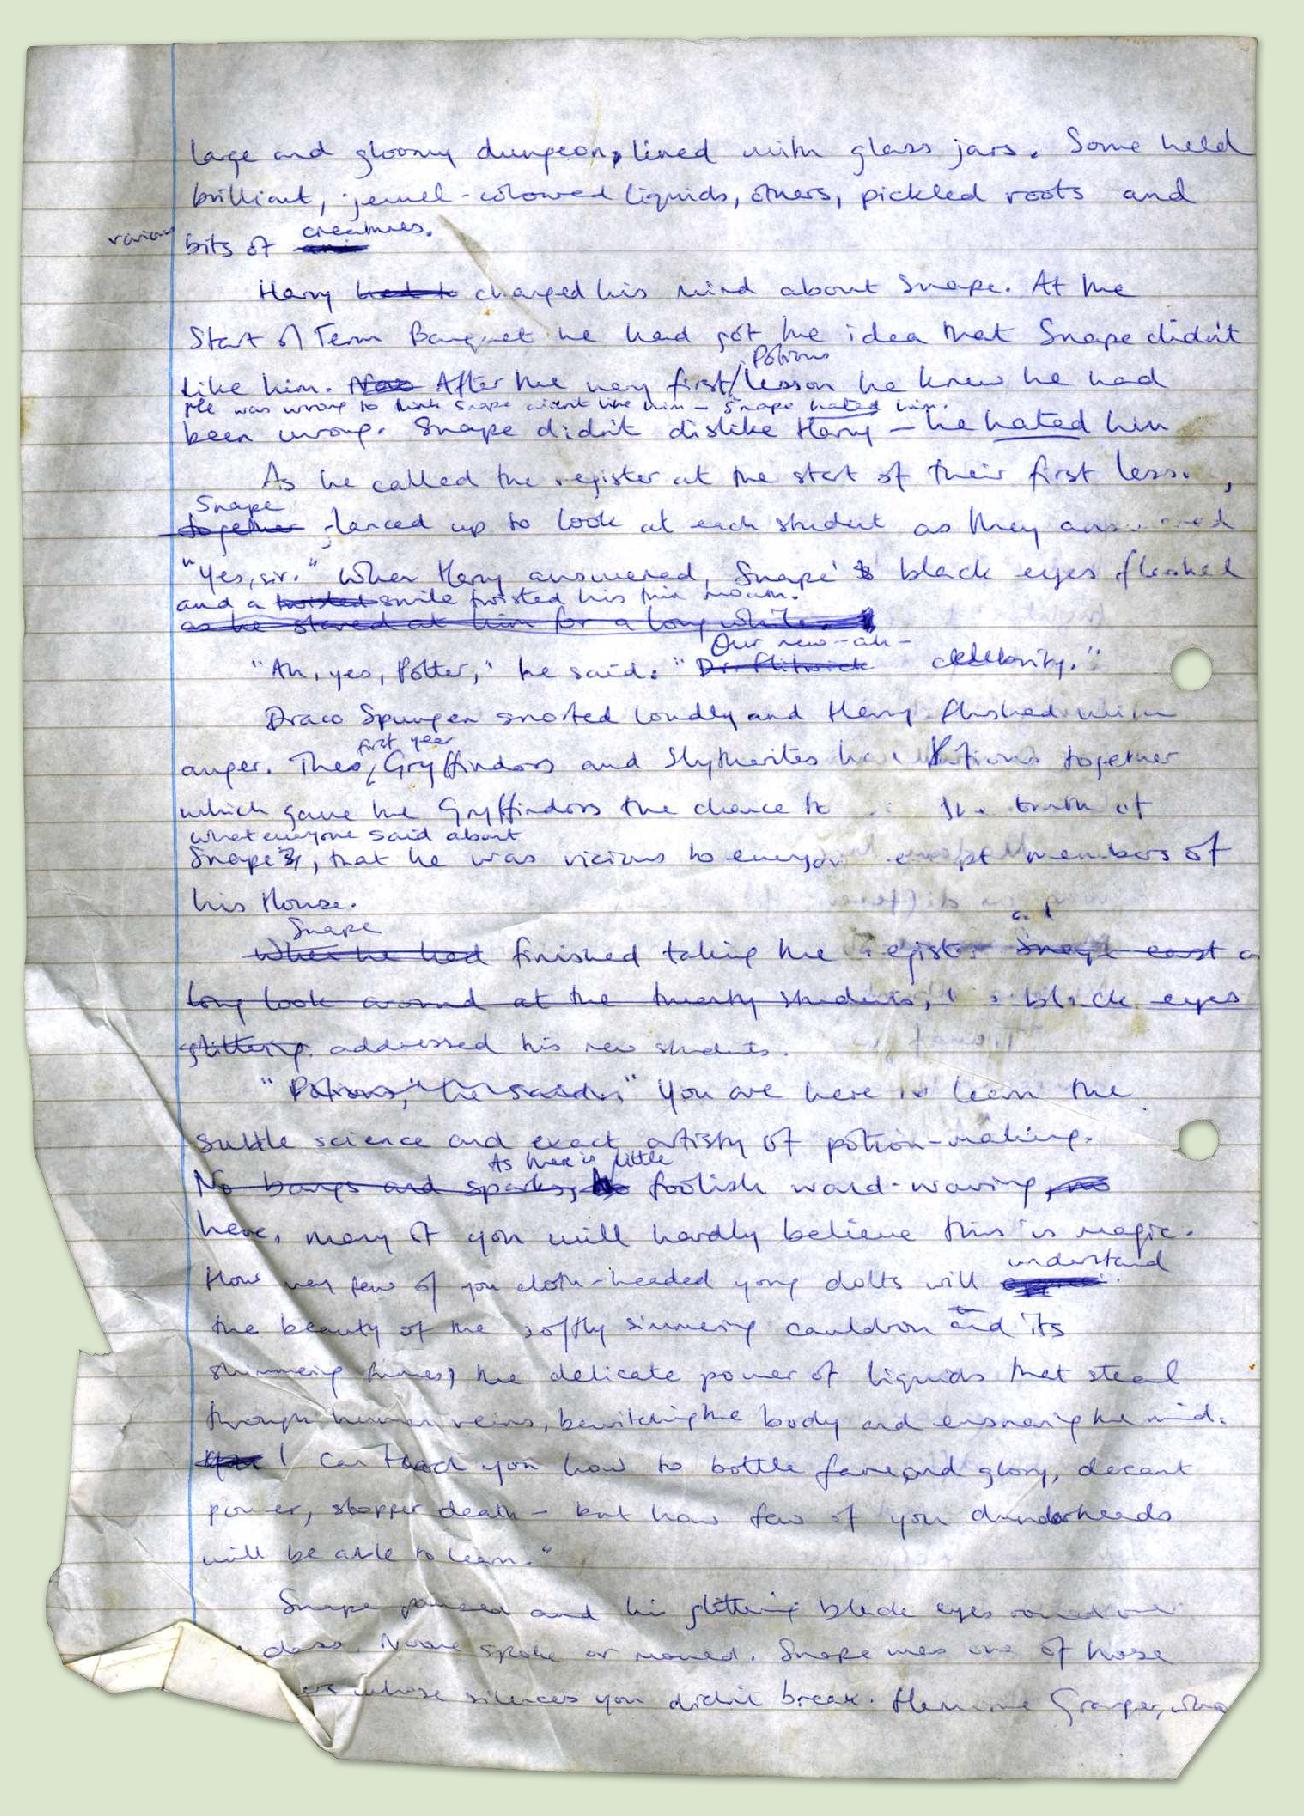 large and gloomy dungeon, lined with glass jars. Some held
brilliant, jewel-coloured liquids, others, pickled roots and
creatures.
various bits of
Harry had to changed his mind about Snape. At the
Start of Term Banquet he had got the idea that Snape didn't
Potions
like him. Now After the very first lesson he knew he had
He was wrong to think Snape didn't like him - Snape hated him.
been wrong. Snape didn't dislike Harry - he hated him
As he called the register at the start of their first
Snape
together glanced up to look at each student as they answered
"Yes, sir." When Harry answered, Snape's black eyes flashed
and a twisted smile twisted his thin mouth.
as he stared at him for a long while.
Our new - ah -
"Ah, yes, Potter," he said. "Dr. Flitwick celebrity."
Draco Spungen snorted loudly and Harry flushed with
first year
anger. The Gryffindors and Slytherites had Potions together
which gave the Gryffindors the chance to truth of
what everyone said about
Snape, that he was vicious to everyone except members of
his House.
Snape and
When he had finished taking the register Snape cast a
long look around at the twenty students, his black eyes
glittering. addressed his new students.
"Potions," he said. "You are here to learn the
subtle science and exact artistry of potion-making.
As there is little
No bangs and sparks, no foolish wand-waving, no
here, many of you will hardly believe this is magic.
understand
How very few of you cloth-headed young dolts will
the beauty of the softly simmering cauldron and its
shimmering fumes, the delicate power of liquids that steal
through human veins, bewitching the body and ensnaring the mind.
I can teach you how to bottle fame and glory, decant
power, stopper death - but how few of you dunderheads
will be able to learn."
Snape paused and his glittering black eyes roved over
class. No one spoke or moved. Snape was one of those
whose silences you didn't break. Hermione Granger, who